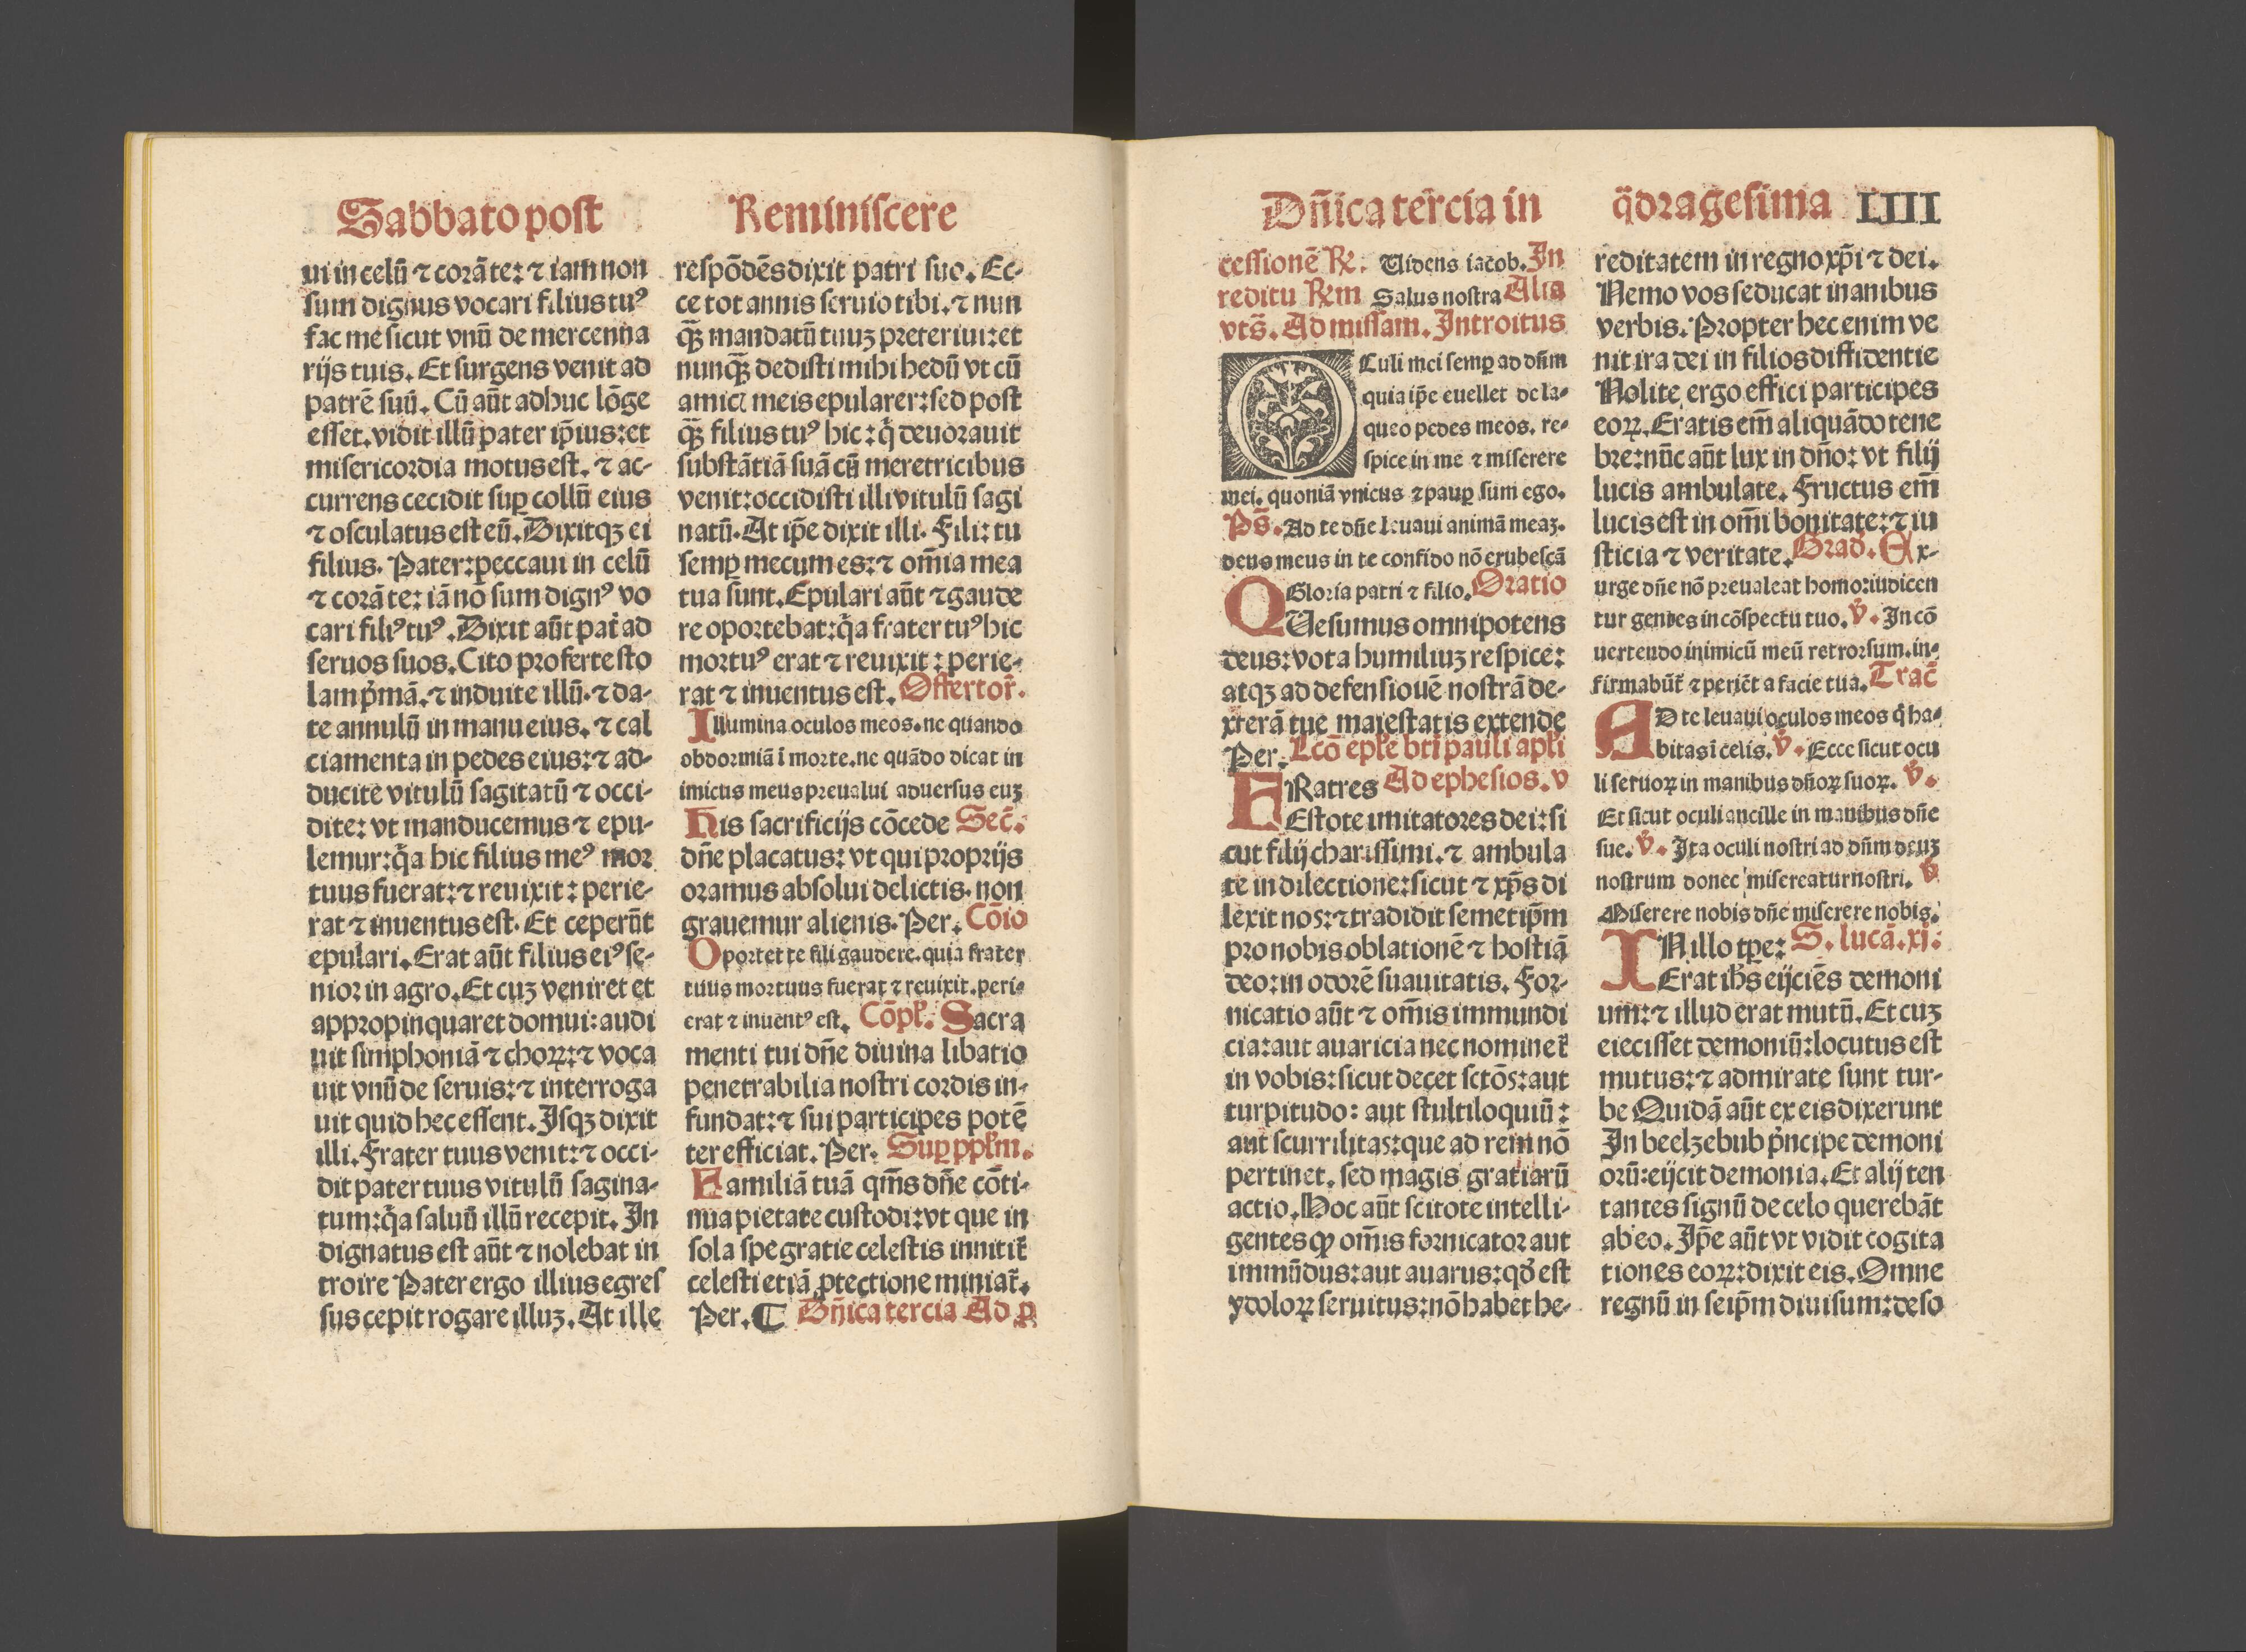 Sabbato post
ui in celū ⁊ corā te: ⁊ iam non
sum dignus vocari filius tuꝰ
fac me sicut vnū de mercenna
rijs tuis. Et surgens venit ad
patrē suū. Cū aūt adhuc lōge
esset. vidit illū pater ip̄ius: et
misericordia motus est. ⁊ ac-
currens cecidit suꝑ collū eius
⁊ osculatus est eū. Dixitqꝫ ei
filius. Pater: peccaui in celū
⁊ corā te: iā nō sum dignꝰ vo
cari filiꝰ tuꝰ. Dixit aūt pat̄ ad
seruos suos. Cito proferte sto
lam p̓mā. ⁊ induite illū. ⁊ da-
te annulū in manu eius. ⁊ cal
ciamenta in pedes eius: ⁊ ad-
ducite vitulū sagitatū ⁊ occi-
dite: vt manducemus ⁊ epu-
lemur: q̄a hic filius meꝰ mor
tuus fuerat: ⁊ reuixit: perie-
rat ⁊ inuentus est. Et ceperūt
epulari. Erat aūt filius eiꝰ se-
nior in agro. Et cuꝫ veniret et
appropinquaret domui: audi
uit simphoniā ⁊ choꝝ: ⁊ voca
uit vnū de seruis: ⁊ interroga
uit quid hec essent. Isqꝫ dixit
illi. Frater tuus venit: ⁊ occi-
dit pater tuus vitulū sagina-
tum: q̄a saluū illū recepit. In
dignatus est aūt ⁊ nolebat in
troire Pater ergo illius egres
sus cepit rogare illuꝫ. At ille
Reminiscere
respōdēs dixit patri suo. Ec-
ce tot annis seruio tibi. ⁊ nun
qꝫ̄ mandatū tuuꝫ preteriui: et
nunqꝫ̄ dedisti mihi hedū vt cū
amicꝭ meis epularer: sed post
qꝫ̄ filius tuꝰ hic: q̓ deuorauit
substātiā suā cū meretricibus
venit: occidisti illi vitulū sagi
natū. At ip̄e dixit illi. Fili: tu
semꝑ mecum es: ⁊ om̄ia mea
tua sunt. Epulari aūt ⁊ gaude
re oportebat: q̄a frater tuꝰ hic
mortuꝰ erat ⁊ reuixit: perie-
rat ⁊ inuentus est. Offertor̄.
Illumina oculos meos. ne quando
obdormiā ī morte. ne quādo dicat in
imicus meus preualui aduersus euꝫ
His sacrificijs cōcede Sec̄.
dn̄e placatus: vt qui proprijs
oramus absolui delictis. non
grauemur alienis. Per. Cōio
Oportet te fili gaudere. quia frater
tuus mortuus fuerat ⁊ reuixit. peri-
erat ⁊ inuentꝰ est. Cōpl̄. Sacra
menti tui dn̄e diuina libatio
penetrabilia nostri cordis in-
fundat: ⁊ sui participes potē
ter efficiat. Per. Suꝑ ppl̄m.
Familiā tuā qm̄s dn̄e cōti-
nua pietate custodi: vt que in
sola spe gratie celestis innitit̄
celesti etiā ꝓtectione muniat̄.
Per. ¶ Dn̄ica tercia Ad ꝓ
Dn̄ica tercia in
cessionē ℞. Uidens iacob. In
reditu Rem Salus nostra Alia
vts̄. Ad missam. Introitus
OCuli mei semꝑ ad dn̄m
quia ip̄e euellet de la-
queo pedes meos. re-
spice in me ⁊ miserere
mei. quoniā vnicus ⁊ pauꝑ sum ego.
Ps̄. Ad te dn̄e leuaui animā meaꝫ.
deus meus in te confido nō erubescā
Gloria patri ⁊ filio. Oratio
QUesumus omnipotens
deus: vota humiliuꝫ respice:
atqꝫ ad defensiouē nostrā de-
xterā tue maiestatis extende
Per. Lcō epl̄e bti pauli apl̄i
FRatres Ad ephesios. v
Estote imitatores dei: si
cut filij charissimi. ⁊ ambula
te in dilectione: sicut ⁊ xp̄s di
lexit nos: ⁊ tradidit semetip̄m
pro nobis oblationē ⁊ hostiā
deo: in odorē suauitatis. For-
nicatio aūt ⁊ om̄is immundi
cia: aut auaricia nec nominet̄
in vobis: sicut decet sctōs: aut
turpitudo: aut stultiloquiū:
aut scurrilitas: que ad rem nō
pertinet. sed magis gratiarū
actio. Hoc aūt scitote intelli-
gentes ꝙ om̄is fornicator aut
immūdus: aut auarus: qd̓ est
ydoloꝝ seruitus: nō habet he-
q̄dragesima LIIII
reditatem in regno xp̄i ⁊ dei.
Nemo vos seducat inanibus
verbis. Propter hec enim ve
nit ira dei in filios diffidentie
Nolite ergo effici participes
eoꝝ. Eratis em̄ aliquādo tene
bre: nūc aūt lux in dn̄o: vt filij
lucis ambulate. Fructus em̄
lucis est in om̄i bonitate: ⁊ iu
sticia ⁊ veritate. Grad. Ex-
urge dn̄e nō preualeat homo: iudicen
tur gentes in cōspectu tuo. ℣. In cō
uertendo inimicū meū retrorsum. in-
firmabūt̄ ⁊ periēt a facie tua. Trac̄
AD te leuaui oculos meos q̓ ha-
bitas ī celis. ℣. Ecce sicut ocu
li seruoꝝ in manibus dn̄oꝝ suoꝝ. ℣.
Et sicut oculi ancille in manibus dn̄e
sue. ℣. Ita oculi nostri ad dn̄m deuꝫ
nostrum donec misereatur nostri. ℣
Miserere nobis dn̄e miserere nobis.
IN illo tꝑe: S. lucā. xj.
Erat ih̄s eijciēs demoni
um: ⁊ illud erat mutū. Et cuꝫ
eiecisset demoniū: locutus est
mutus: ⁊ admirate sunt tur-
be Quidā aūt ex eis dixerunt
In beelzebub p̓ncipe demoni
orū: eijcit demonia. Et alij ten
tantes signū de celo querebāt
ab eo. Ip̄e aūt vt vidit cogita
tiones eoꝝ: dixit eis. Omne
regnū in seip̄m diuisum: deso